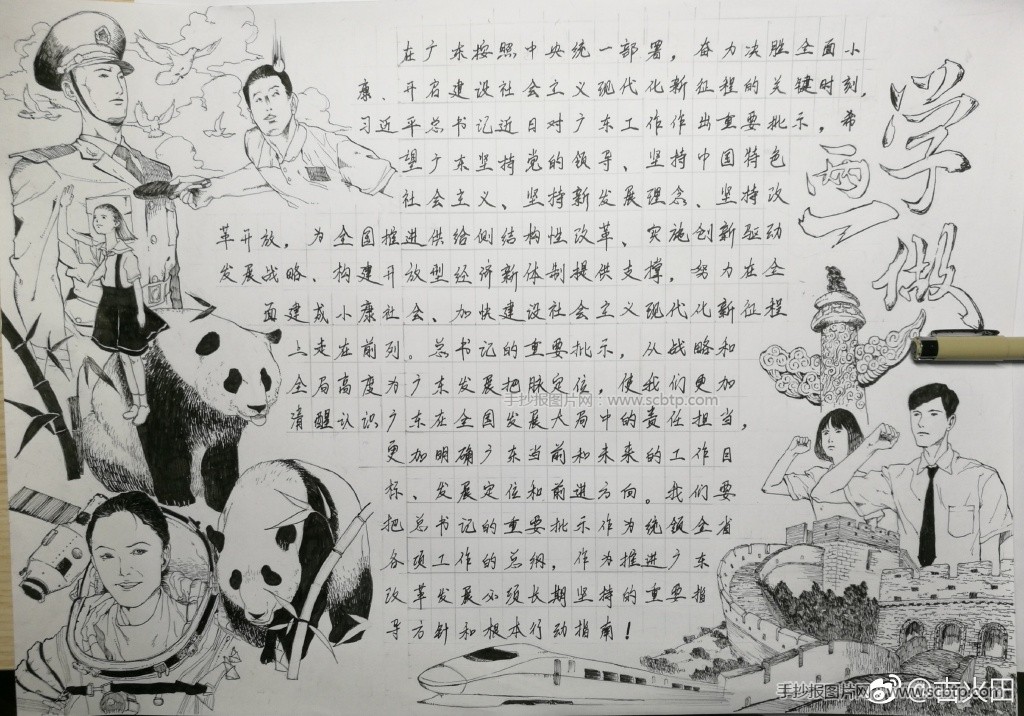 学
两
一
做
在广东按照中央统一部署，奋力决胜全面小
康、开启建设社会主义现代化新征程的关键时刻，
习近平总书记近日对广东工作作出重要批示，希
望广东坚持党的领导、坚持中国特色
社会主义、坚持新发展理念、坚持改
革开放，为全国推进供给侧结构性改革、实施创新驱动
发展战略、构建开放型经济新体制提供支撑，努力在全
面建成小康社会、加快建设社会主义现代化新征程
上走在前列。总书记的重要批示，从战略和
全局高度为广东发展把脉定位，使我们更加
清醒认识广东在全国发展大局中的责任担当，
更加明确广东当前和未来的工作目
标、发展定位和前进方向。我们要
把总书记的重要批示作为统领全省
各项工作的总纲，作为推进广东
改革发展必须长期坚持的重要指
导方针和根本行动指南！
手抄报图片网：www.scbtp.com
手抄报图片网：www.scbtp.com